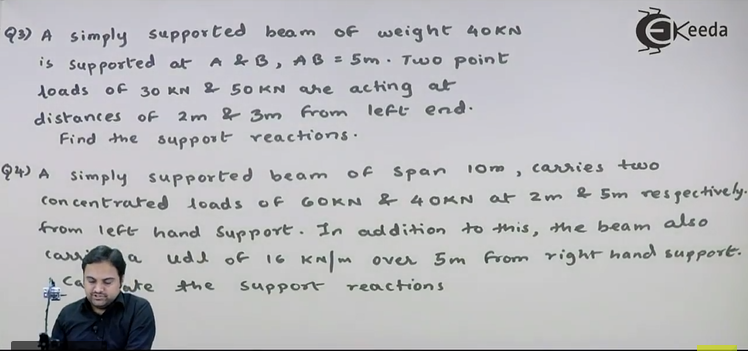 Q3) A simply supported beam of weight 40KN
is supported at A & B, AB = 5m. Two point
loads of 30 KN & 50 KN are acting at
distances of 2m & 3m from left end.
Find the support reactions.
Q4) A simply supported beam of span 10m, carries two
concentrated loads of 60KN & 40KN at 2m & 5m respectively.
from left hand support. In addition to this, the beam also
a udl of 16 KN/m over 5m from right hand support.
the support reactions
Ekeeda